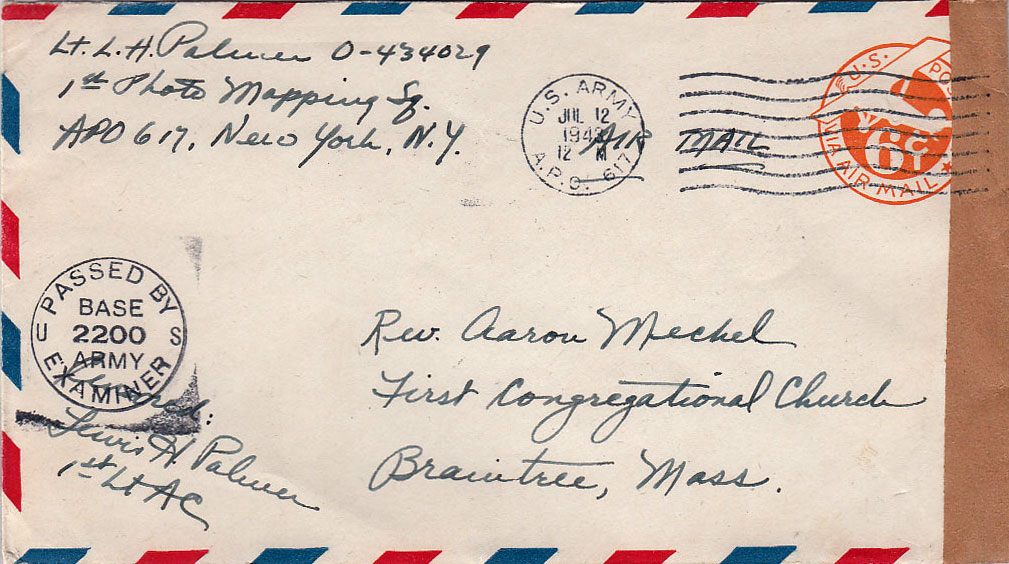 Lt. L. H. Palmer O-434029
1st Photo Mapping Sq.
APO 617, New York, N.Y.
U.S. ARMY
JUL 12
1943
12 M
A.P.O. 617
AIR MAIL
U.S. POS
6¢
VIA AIR MAIL
PASSED BY
BASE
U 2200 S
ARMY
EXAMINER
Lewis H. Palmer
1st Lt AC
Rev. Aaron Meckel
First Congregational Church
Braintree, Mass.